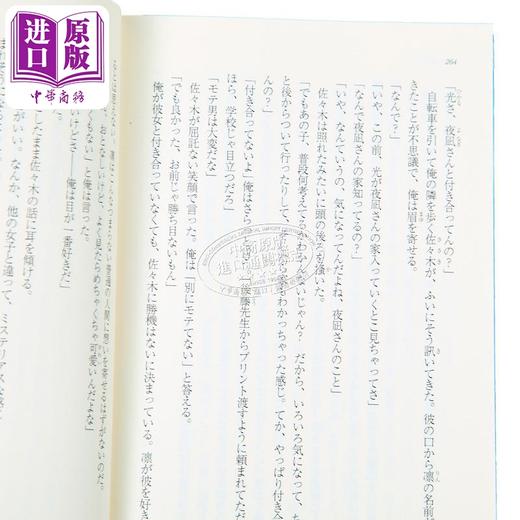 进口
原版
中华商务
264
「光さ、夜凪さんと付き合ってんの?」
自転車を引いて俺の隣を歩く佐々木が、ふいにそう訊いてきた。彼の口から凛の名前
きたことが不思議で、俺は眉を寄せる。
「なんで?」
「いや、この前、光が夜凪さんの家入っていくとこ見ちゃってさ」
「なんで夜凪さんの家知ってるの?」
「いや、なんていうの、気になってんだよね、夜凪さんのこと」
佐々木は照れたみたいに頭の後ろを掻いた。
「でもあの子、普段何考えてるかわかんないじゃん? だから、いろいろ気になって、ち
と後ろからついて行ったりして、
家もわかっちゃった感じ。てか、やっぱり付き合
んの?」
「付き合ってないよ」俺はさら
「後藤先生からプリント渡すように頼まれてただ
ほら、学校じゃ目立つだろ」
「モテ男は大変だな」
佐々木が屈託ない笑顔で言った。俺は「別にモテてない」と答える。
「でも良かった、お前じゃ勝ち目ないもん」
俺が彼女と付き合っていなくても、佐々木に勝機はないに決まっている。凛が彼を好き
普通の人間に想いを寄せるはずがないのだ。
おとなしいけど、よく見たらめちゃくちゃ可愛いんだよな」
くもない」と俺は言った。
いけどさ——俺は目が一番好きだ」
したまま佐々木の話に耳を傾ける。
がいい。なんか、他の女子と違って、ミステリアスな感